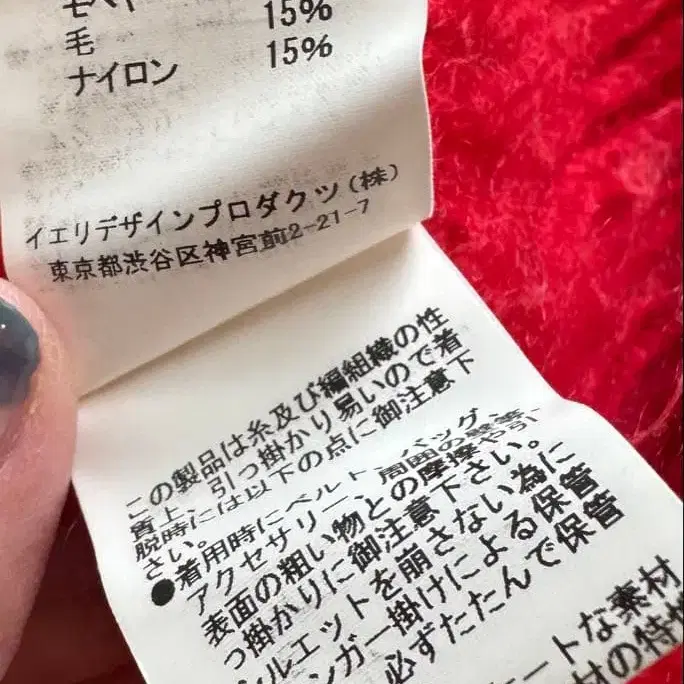 モヘヤ 15%
毛 15%
ナイロン
イエリデザインプロダクツ(株)
東京都渋谷区神宮前2-21-7
この製品は糸及び編組織の性
質上、引っ掛かり易いので着
脱時には以下の点に御注意下
さい。
●着用時にベルト、バッグ、
アクセサリー、周囲の壁等、
表面の粗い物との摩擦や引
っ掛かりに御注意下さい。
シルエットを崩さない為に
ンガー掛けによる保管
必ずたたんで保管
ートな素材
材の特性